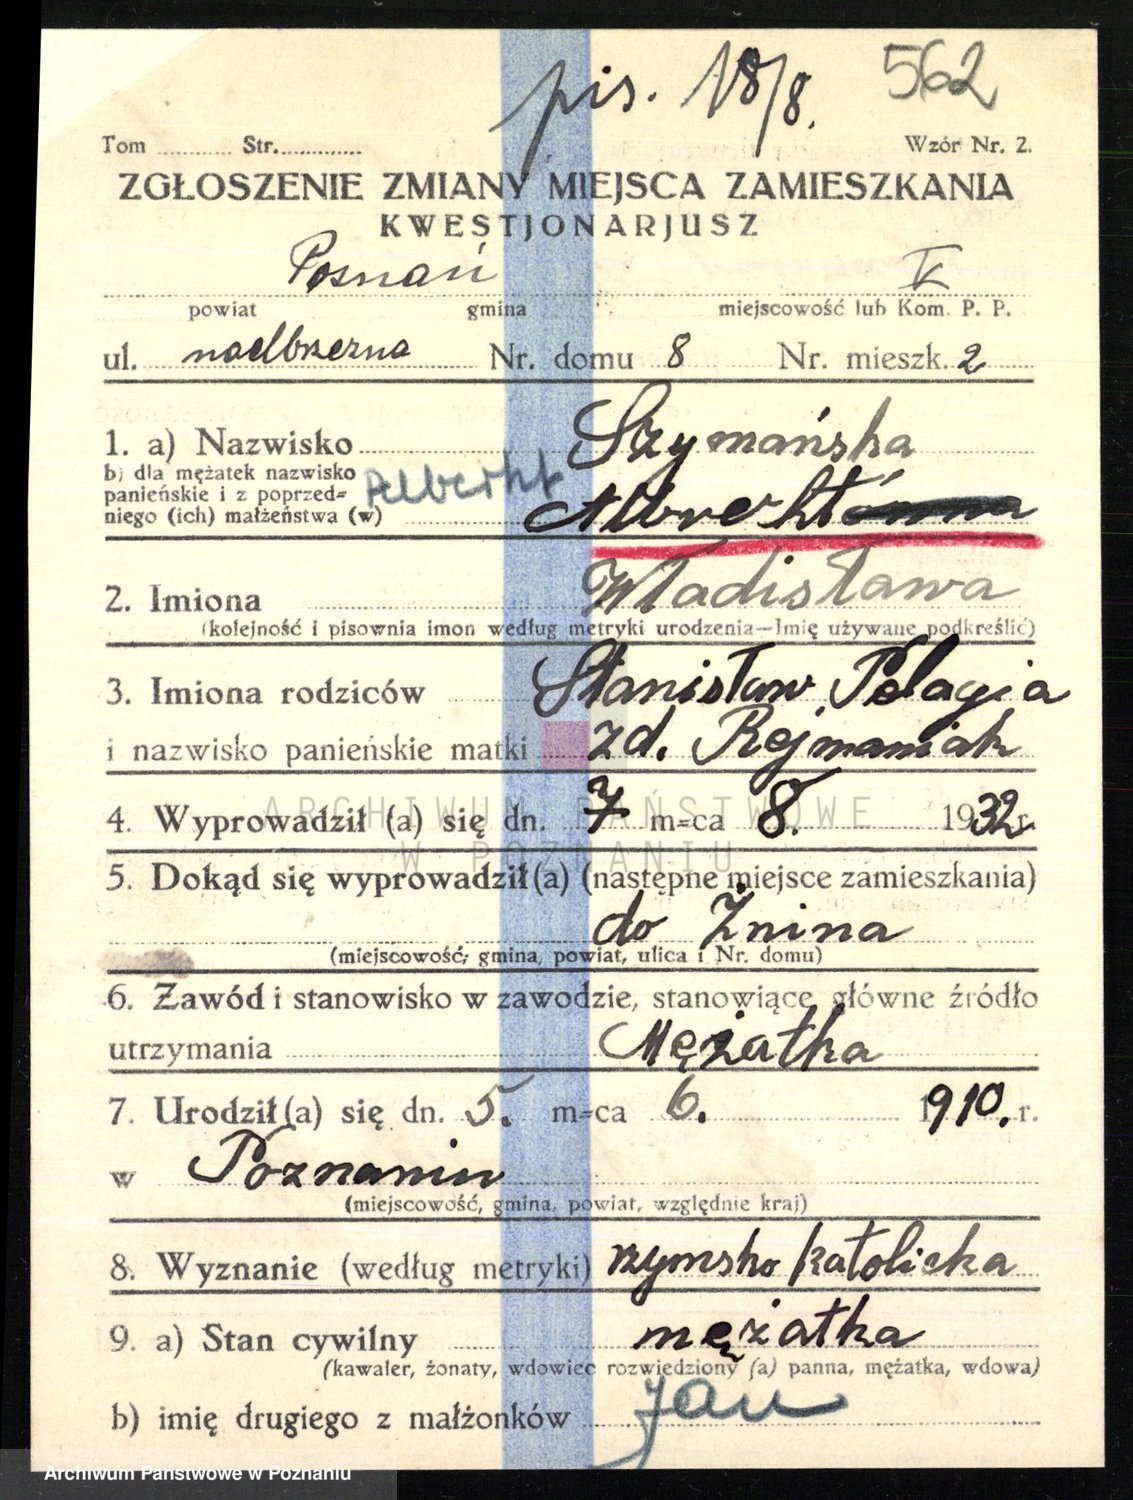 pis. 18/8. 562
Tom ........... Str............. Wzór Nr. 2.
ZGŁOSZENIE ZMIANY MIEJSCA ZAMIESZKANIA
KWESTJONARJUSZ
Poznań V
powiat gmina miejscowość lub Kom. P. P.
ul. nadbrzerna Nr. domu 8 Nr. mieszk. 2
1. a) Nazwisko Szymańska
b) dla mężatek nazwisko
panieńskie i z poprzed=
niego (ich) małżeństwa (w) Albrecht Albrechtówna
2. Imiona Władisława
(kolejność i pisownia imon według metryki urodzenia—Imię używane podkreślić)
3. Imiona rodziców Stanisław, Pelagia
i nazwisko panieńskie matki zd. Rejmaniak
4. Wyprowadził (a) się dn. 7 m=ca 8. 1932 r.
ARCHIWUM PAŃSTWOWE
W POZNANIU
5. Dokąd się wyprowadził (a) (następne miejsce zamieszkania)
do Żnina
(miejscowość, gmina, powiat, ulica i Nr. domu)
6. Zawód i stanowisko w zawodzie, stanowiące główne źródło
utrzymania Mężatka
7. Urodził (a) się dn. 5. m=ca 6. 1910. r.
w Poznaniu
(miejscowość, gmina, powiat, względnie kraj)
8. Wyznanie (według metryki) rzymsko katolicka
9. a) Stan cywilny mężatka
(kawaler, żonaty, wdowiec rozwiedziony (a) panna, mężatka, wdowa)
b) imię drugiego z małżonków Jan
Archiwum Państwowe w Poznaniu